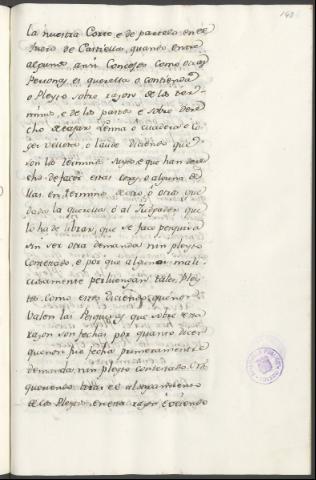 la nuestra Corte, e de parecelo en el
fuero de Castiella, quando entre
algunos, asi Concejos como otras
Personas es querella o contienda
o Pleyto sobre razon de los ter-
minos, e de los pastos e sobre dere-
cho de tajar Leña o madera o co-
ger vellota o lande diciendo que
son los terminos suyos, e que han dere-
cho de facer estas cosas, o alguna de
llas en termino de otro, ó otra que
dada la querella ó al Judgador que
lo ha de librar, que se face pesquisa
sin ser otra demanda nin pleyto
Contestado, e por que algunos mali-
ciosamente perluengan tales Pley-
tos como estos diciendo que non
Valen las Pesquisas que sobre esta
razon son fechas por quanto dicen
que non fue fecha primeramente
demanda, nin pleyto contestado. Nos
queriendo tirar el alongamiento
de los Pleytos en esta razon é veiendo